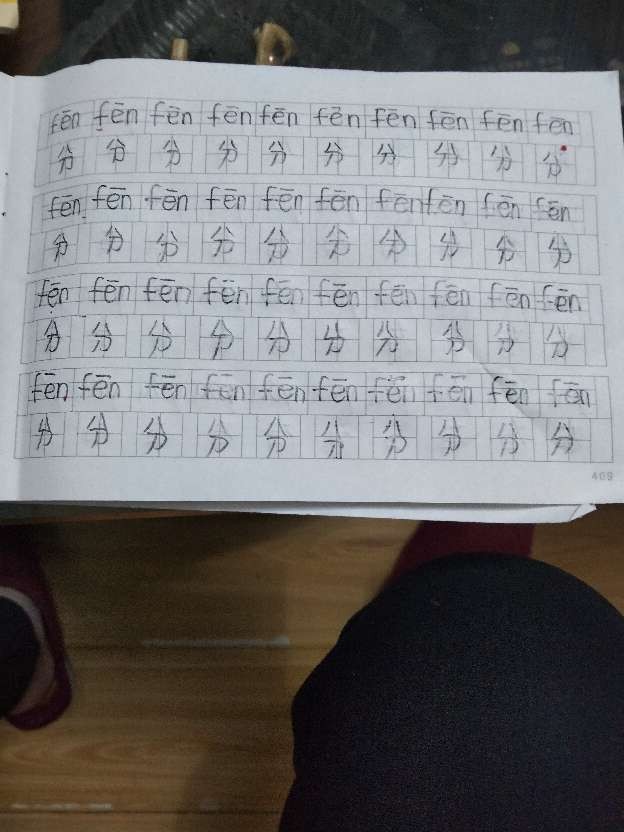 fēn fēn fēn fēn fēn fēn fēn fēn fēn fēn
分 分 分 分 分 分 分 分 分 分
fēn fēn fēn fēn fēn fēn fēn fēn fēn fēn
分 分 分 分 分 分 分 分 分 分
fēn fēn fēn fēn fēn fēn fēn fēn fēn fēn
分 分 分 分 分 分 分 分 分 分
fēn fēn fēn fēn fēn fēn fēn fēn fēn fēn
分 分 分 分 分 分 分 分 分 分
409